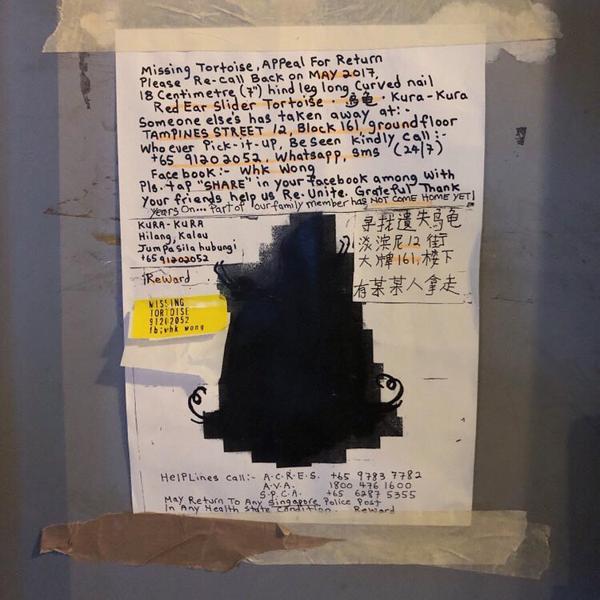 Missing Tortoise, Appeal For Return
Please Re-Call Back on MAY 2017,
18 Centimetre (7") hind leg long Curved nail
Red Ear Slider Tortoise · 烏龜 · Kura-Kura
Someone else's has taken away at:-
TAMPINES STREET 12, Block 161, groundfloor
Who ever Pick-it-up, Be Seen kindly Call:-
+65 91202052, Whatsapp, sms (24/7)
Facebook:- Whk Wong
Pls. tap "SHARE" in your facebook among with
Your friends help us Re.Unite. Grateful Thank
years On... Part of our family member has NOT COME HOME YET!
KURA-KURA
Hilang, Kalau
Jumpa sila hubungi
+65 91202052
Reward
寻找遗失乌龟
淡滨尼12街
大牌161,楼下
有某某人拿走
MISSING
TORTOISE
91202052
fb;whk wong
HelpLines call:- A.C.R.E.S. +65 9783 7782
A.V.A. 1800 476 1600
S.P.C.A. +65 6287 5355
May Return To Any Singapore Police Post
In Any Health state Condition. Reward